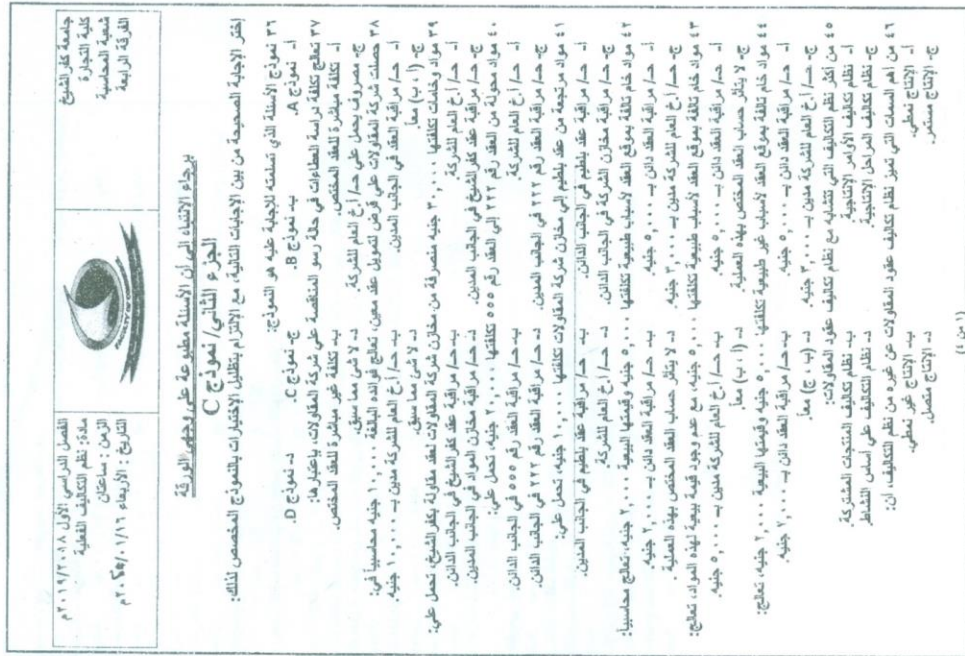 جامعة كفر الشيخ
كلية التجارة
شعبة المحاسبة
الفرقة الرابعة
الفصل الدراسي الأول ٢٠١٩/٢٠١٨م
مادة: نظم التكاليف الفعلية
الزمن: ساعتان
التاريخ: الأربعاء ٢٠١٩/٠١/١٦م
برجاء الانتباه إلى أن الأسئلة مطبوعة على وجهي الورقة
الجزء الثاني/ نموذج C
إختر الإجابة الصحيحة من بين الإجابات التالية، مع الإلتزام بتظليل الإختيارات بالنموذج المخصص لذلك:
٣٦ نموذج الأسئلة الذي تسلمته للإجابة عليه هو النموذج:
أ- نموذج A. ب- نموذج B. ج- نموذج C. د- نموذج D.
٣٧ تعالج تكلفة دراسة العطاءات في حالة رسو المناقصة على شركة المقاولات، بإعتبارها:
أ- تكلفة مباشرة للعقد المختص. ب- تكلفة غير مباشرة للعقد المختص.
ج- مصروف يحمل على حـ/ أ.خ العام للشركة. د- لا شئ مما سبق.
٣٨ حصلت شركة المقاولات على قرض لتمويل عقد معين، تعالج فوائده البالغة ١٠,٠٠٠ جنيه محاسبياً في:
أ- حـ/ مراقبة العقد في الجانب المدين. ب- حـ/ أ.خ العام للشركة مدين بـ ١٠,٠٠٠ جنيه.
ج- (أ ، ب) معاً. د- لا شئ مما سبق.
٣٩ مواد وخامات تكلفتها ٣٠,٠٠٠ جنيه منصرفة من مخازن شركة المقاولات لعقد مقاولة بكفر الشيخ، تحمل على:
أ- حـ/ أ.خ العام للشركة. ب- حـ/ مراقبة عقد كفر الشيخ في الجانب الدائن.
ج- حـ/ مراقبة عقد كفر الشيخ في الجانب المدين. د- حـ/ مراقبة مخازن المواد في الجانب المدين.
٤٠ مواد محولة من العقد رقم ٢٢٢ إلى العقد رقم ٥٥٥ تكلفتها ٢٠,٠٠٠ جنيه، تحمل على:
أ- حـ/ أ.خ العام للشركة ب- حـ/ مراقبة العقد رقم ٥٥٥ في الجانب الدائن.
ج- حـ/ مراقبة العقد رقم ٢٢٢ في الجانب المدين. د- حـ/ مراقبة العقد رقم ٢٢٢ في الجانب الدائن.
٤١ مواد مرتجعه من عقد بلطيم إلى مخازن شركة المقاولات تكلفتها ١٠,٠٠٠ جنيه، تحمل على:
أ- حـ/ مراقبة عقد بلطيم في الجانب الدائن. ب- حـ/ مراقبة عقد بلطيم في الجانب المدين.
ج- حـ/ مراقبة مخازن الشركة في الجانب الدائن. د- حـ/ أ.خ العام للشركة.
٤٢ مواد خام تالفة بموقع العقد لأسباب طبيعية تكلفتها ٥,٠٠٠ جنيه وقيمتها البيعية ٢,٠٠٠ جنيه، تعالج محاسبيا:
أ- حـ/ مراقبة العقد دائن بـ ٥,٠٠٠ جنيه. ب- حـ/ مراقبة العقد دائن بـ ٢,٠٠٠ جنيه.
ج- حـ/ أ.خ العام للشركة مدين بـ ٣,٠٠٠ جنيه. د- لا يتأثر حساب العقد المختص بهذه العملية.
٤٣ مواد خام تالفة بموقع العقد لأسباب طبيعية تكلفتها ٥,٠٠٠ جنيه، مع عدم وجود قيمة بيعية لهذه المواد، تعالج:
أ- حـ/ مراقبة العقد دائن بـ ٥,٠٠٠ جنيه. ب- حـ/ أ.خ العام للشركة مدين بـ ٥,٠٠٠ جنيه.
ج- لا يتأثر حساب العقد المختص بهذه العملية. د- (أ ، ب) معاً.
٤٤ مواد خام تالفة بموقع العقد لأسباب غير طبيعية تكلفتها ٥,٠٠٠ جنيه وقيمتها البيعية ٢,٠٠٠ جنيه، تعالج:
أ- حـ/ مراقبة العقد دائن بـ ٥,٠٠٠ جنيه. ب- حـ/ مراقبة العقد دائن بـ ٢,٠٠٠ جنيه.
ج- حـ/ أ.خ العام للشركة مدين بـ ٣,٠٠٠ جنيه. د- (ب ، ج) معاً.
٤٥ من أكثر نظم التكاليف التي تتشابه مع نظام تكاليف عقود المقاولات:
أ- نظام تكاليف الأوامر الإنتاجية ب- نظام تكاليف المنتجات المشتركة
ج- نظام تكاليف المراحل الإنتاجية. د- نظام التكاليف على أساس النشاط.
٤٦ من أهم السمات التي تميز نظام تكاليف عقود المقاولات عن غيره من نظم التكاليف، أن:
أ- الإنتاج نمطي. ب- الإنتاج غير نمطي.
ج- الإنتاج مستمر. د- الإنتاج متصل.
(١ من ٤)